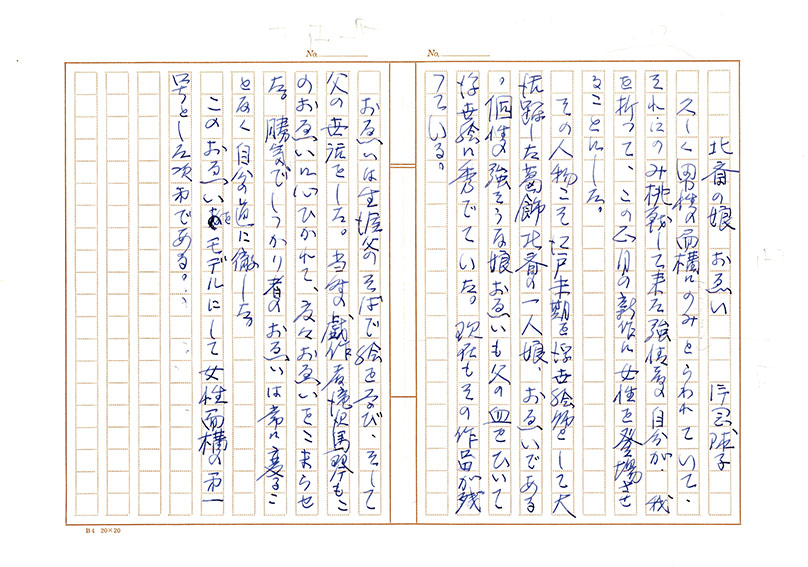 No.
No.
北斎の娘 おゑい 片岡球子
久しく男性の面構にのみとらわれていて、
それにのみ挑戦して来た強情者の自分が、我
を折って、この正月の新作に女性を登場させ
ることにした。
その人物こそ江戸末期を浮世絵師として大
活躍した葛飾北斎の一人娘、おゑいである
。個性の強そうな娘おゑいも父の血をひいて
浮世絵に秀でていた。現在もその作品が残
っている。
おゑいは生涯父のそばで絵を学び、そして
父の世話をした。当時の戯作者滝沢馬琴もこ
のおゑいに心ひかれて、度々おゑいをこまらせ
た。勝気でしっかり者のおゑいは常に変るこ
となく自分の道に徹した。
このおゑいをモデルにして女性面構の第一
号とした次第である。
B4 20×20